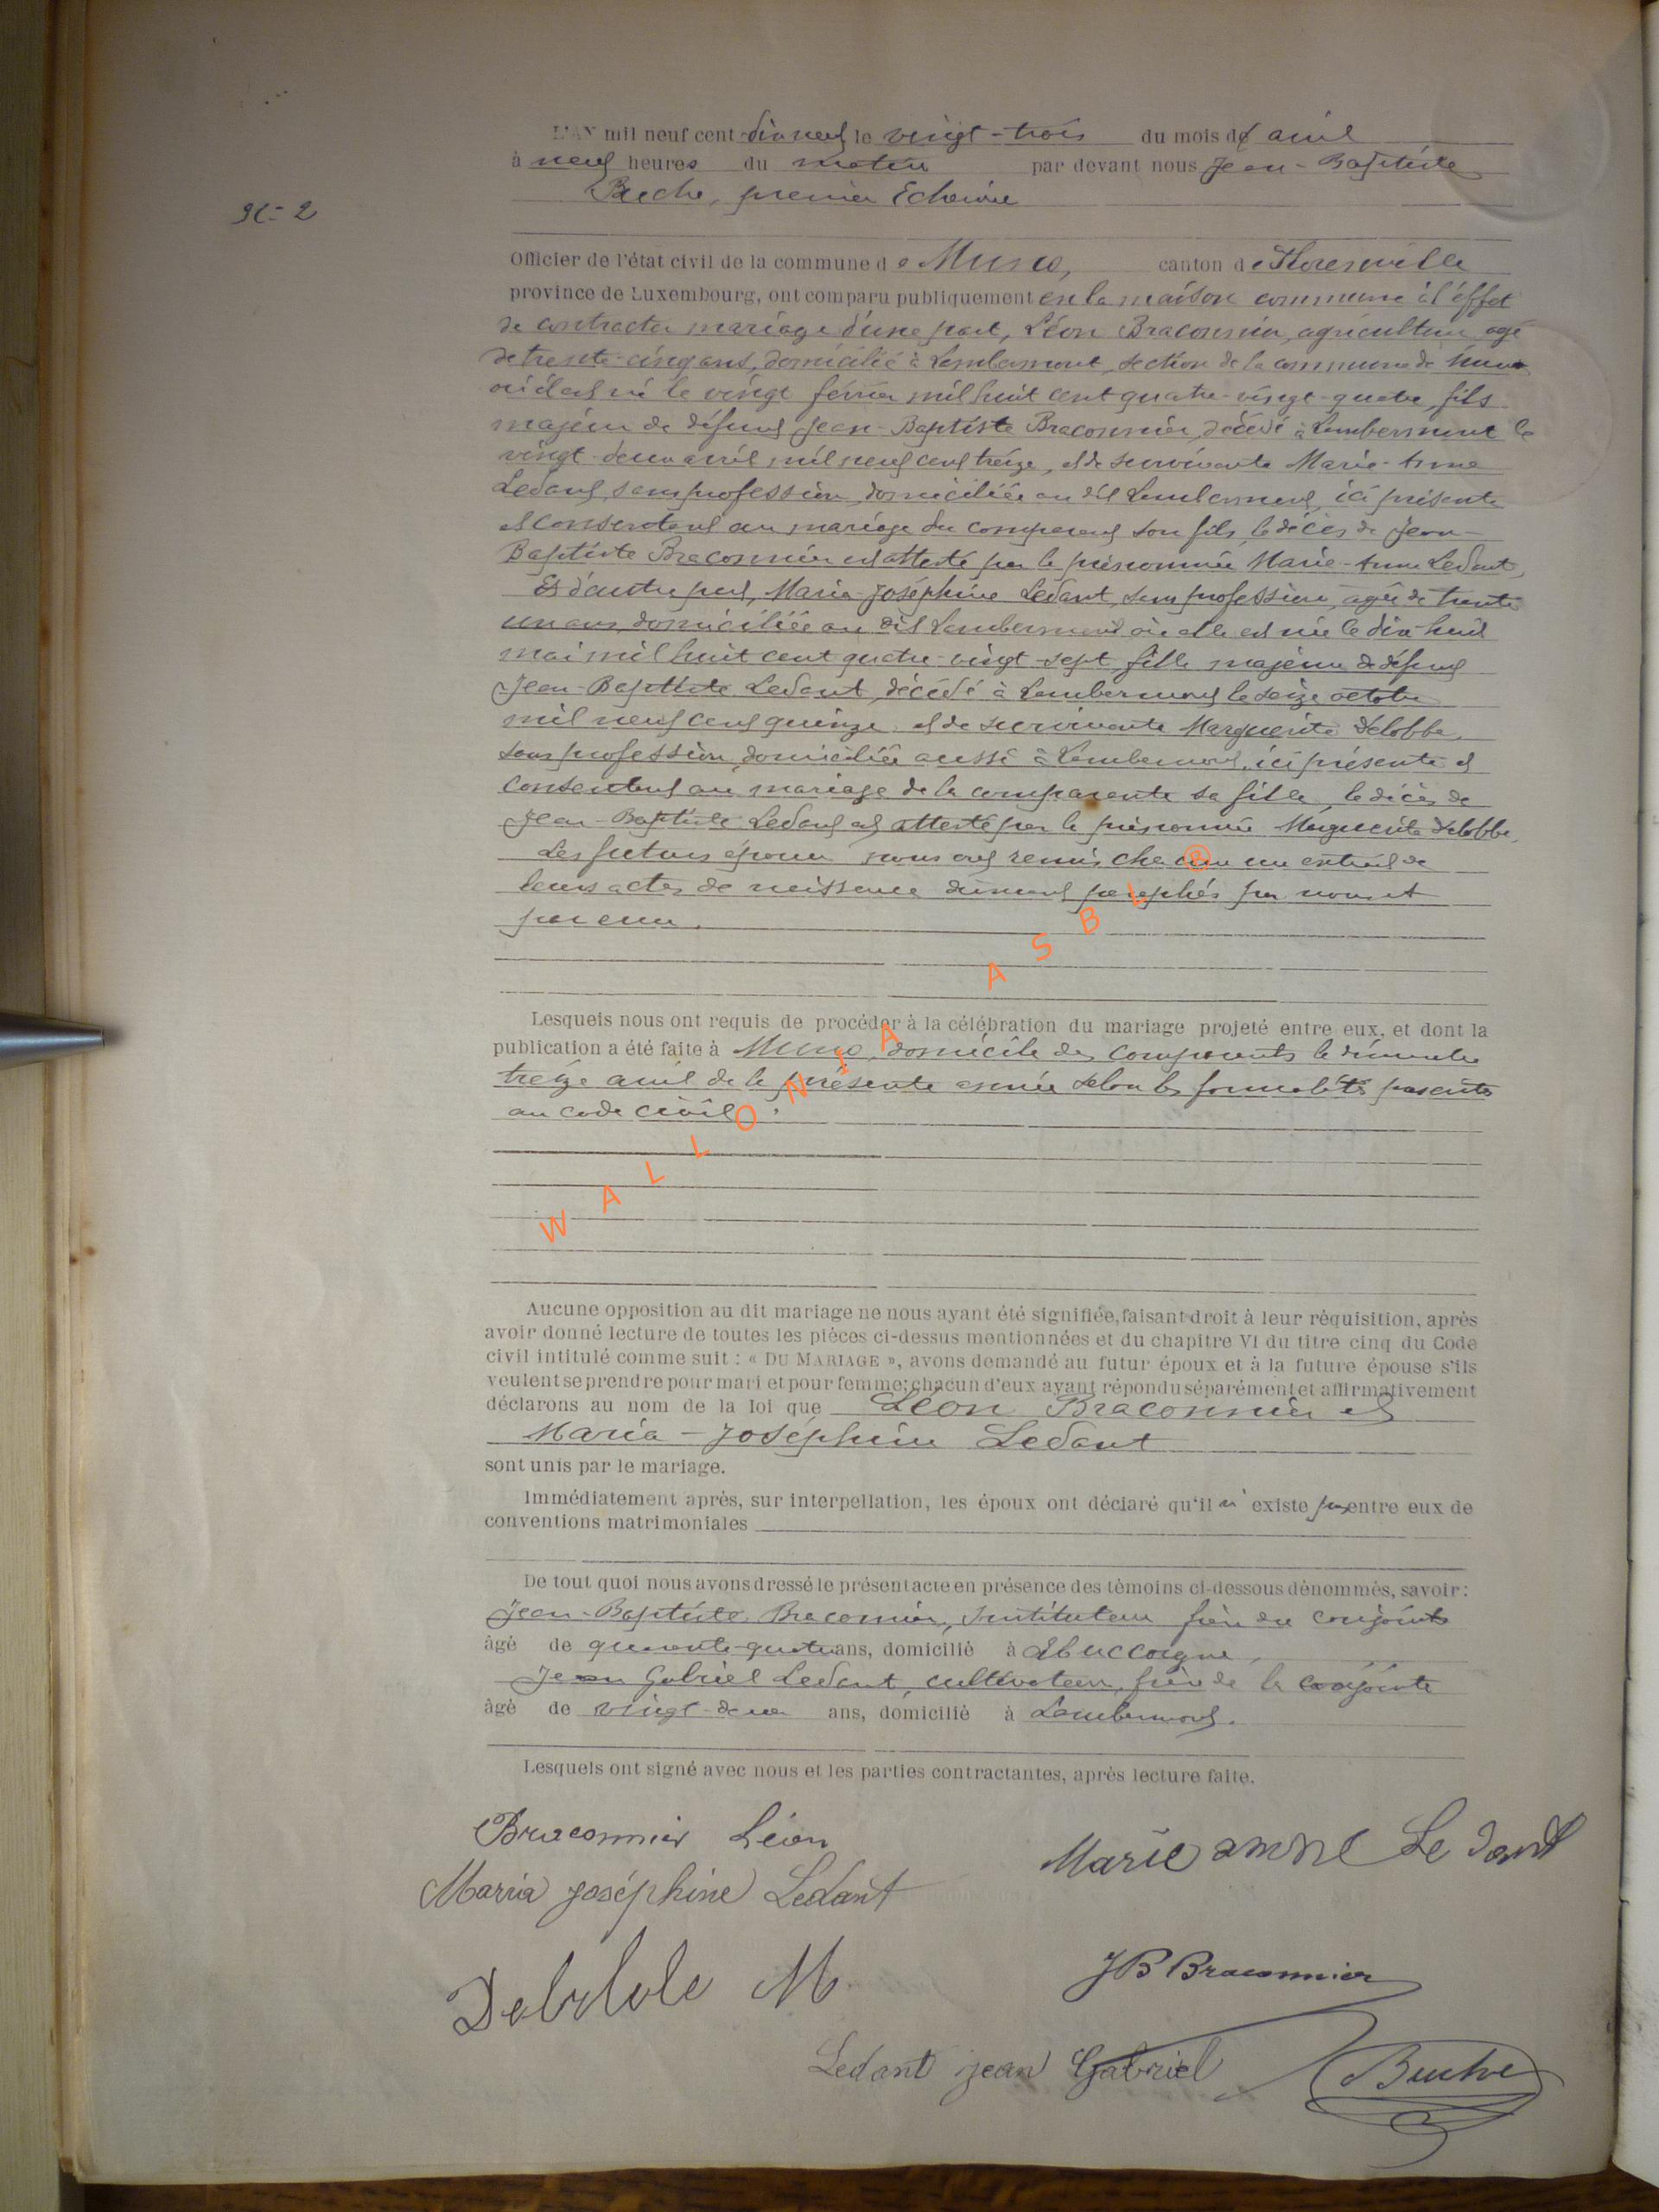 L'AN mil neuf cent dix neuf le vingt-trois du mois de avril
à neuf heures du matin par devant nous Jean-Baptiste
Buche, premier Echevin
N°- 2
Officier de l'état civil de la commune de Muno, canton de Florenville
province de Luxembourg, ont comparu publiquement en la maison commune à l'effet
de contracter mariage d'une part, Léon Braconnier, agriculteur, agé
de trente-cinq ans, domicilié à Lambermont, section de la commune de Muno
où il est né le vingt février mil huit cent quatre-vingt-quatre, fils
majeur de défunt Jean-Baptiste Braconnier, décédé à Lambermont le
vingt-deux avril mil neuf cent treize, et de survivante Marie-Anne
Ledant, sans profession, domiciliée au dit Lambermont, ici présente
et consentant au mariage du comparant son fils, le décès de Jean-
Baptiste Braconnier est attesté par la prénommée Marie-Anne Ledant,
Et d'autre part, Maria-Joséphine Ledant, sans profession, agée de trente
un ans, domiciliée au dit Lambermont où elle est née le dix-huit
mai mil huit cent quatre-vingt-sept, fille majeure de défunt
Jean-Baptiste Ledant, décédé à Lambermont le seize octobre
mil neuf cent quinze et de survivante Marguerite Delobbe,
sans profession, domiciliée aussi à Lambermont, ici présente et
consentant au mariage de la comparante sa fille, le décès de
Jean-Baptiste Ledant est attesté par la prénommée Marguerite Delobbe.
Les futurs époux nous ont remis chacun un extrait de
leurs actes de naissance dûment paraphés par nous et
par eux.
Lesquels nous ont requis de procéder à la célébration du mariage projeté entre eux, et dont la
publication a été faite à Muno, domicile des comparants le dimanche
treize avril de la présente année selon les formalités prescrites
au code civil.
WALLONIA ASBL ®
Aucune opposition au dit mariage ne nous ayant été signifiée, faisant droit à leur réquisition, après
avoir donné lecture de toutes les pièces ci-dessus mentionnées et du chapitre VI du titre cinq du Code
civil intitulé comme suit : « DU MARIAGE », avons demandé au futur époux et à la future épouse s'ils
veulent se prendre pour mari et pour femme; chacun d'eux ayant répondu séparément et affirmativement
déclarons au nom de la loi que Léon Braconnier et
Maria-Joséphine Ledant
sont unis par le mariage.
Immédiatement après, sur interpellation, les époux ont déclaré qu'il n'existe pas entre eux de
conventions matrimoniales
De tout quoi nous avons dressé le présent acte en présence des témoins ci-dessous dénommés, savoir :
Jean-Baptiste Braconnier, Instituteur frère du conjoint
âgé de quarante-quatre ans, domicilié à
Jean Gabriel Ledant, cultivateur, frère de la conjointe
âgé de vingt-deux ans, domicilié à Lambermont.
Lesquels ont signé avec nous et les parties contractantes, après lecture faite.
Braconnier Léon
Marie anne Le dant
Maria Joséphine Ledant
JB Braconnier
M
Ledant jean Gabriel
Buche